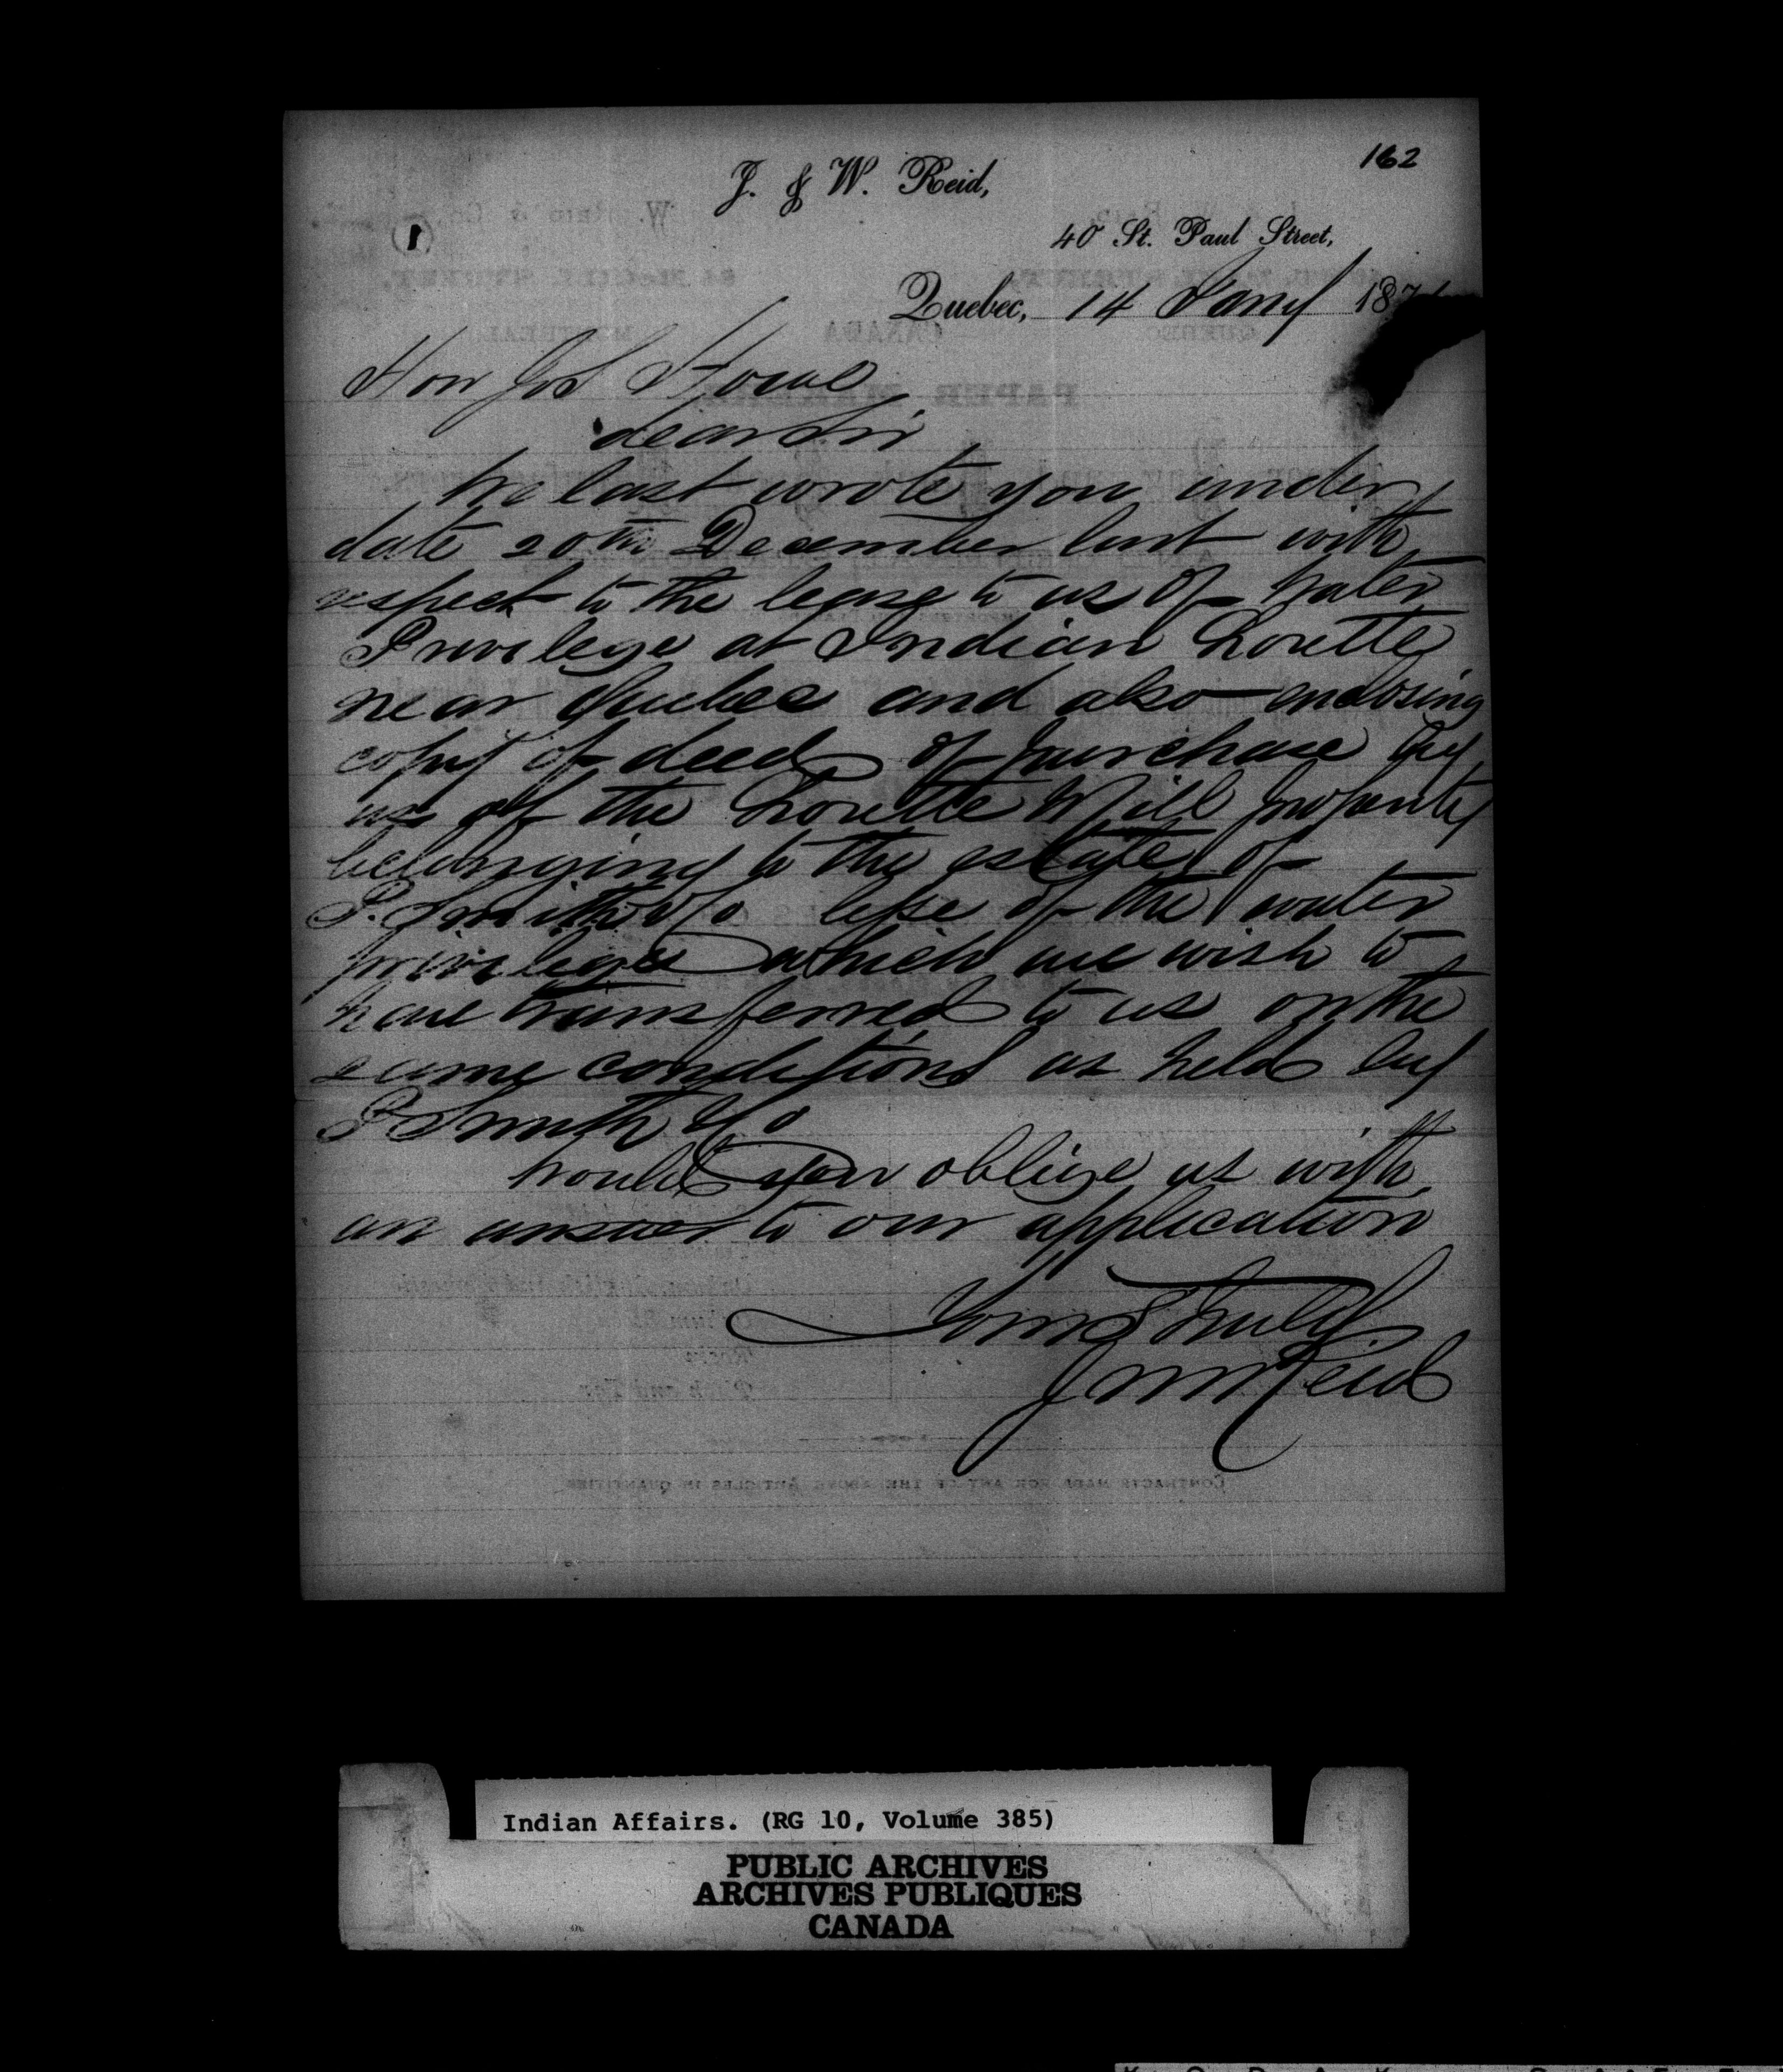 162
J. & W. Reid,
(1)
40 St. Paul Street,
Quebec, 14 Jany 187
Hon Jos Howe
dear Sir
We last wrote you under
date 20th December last with
respect to the lease to us of Water
Privilege at Indian Lorette
near Quebec and also enclosing
copy of deed of purchase by
us of the Lorette Mill property
belonging to the estate of
P. Smith & Co of the water
privilege which we wish to
have transferred to us on the
same conditions as held by
P Smith & Co
Would you oblige us with
an answer to our application
Yours Truly
J W Reid
Indian Affairs. (RG 10, Volume 385)
PUBLIC ARCHIVES
ARCHIVES PUBLIQUES
CANADA